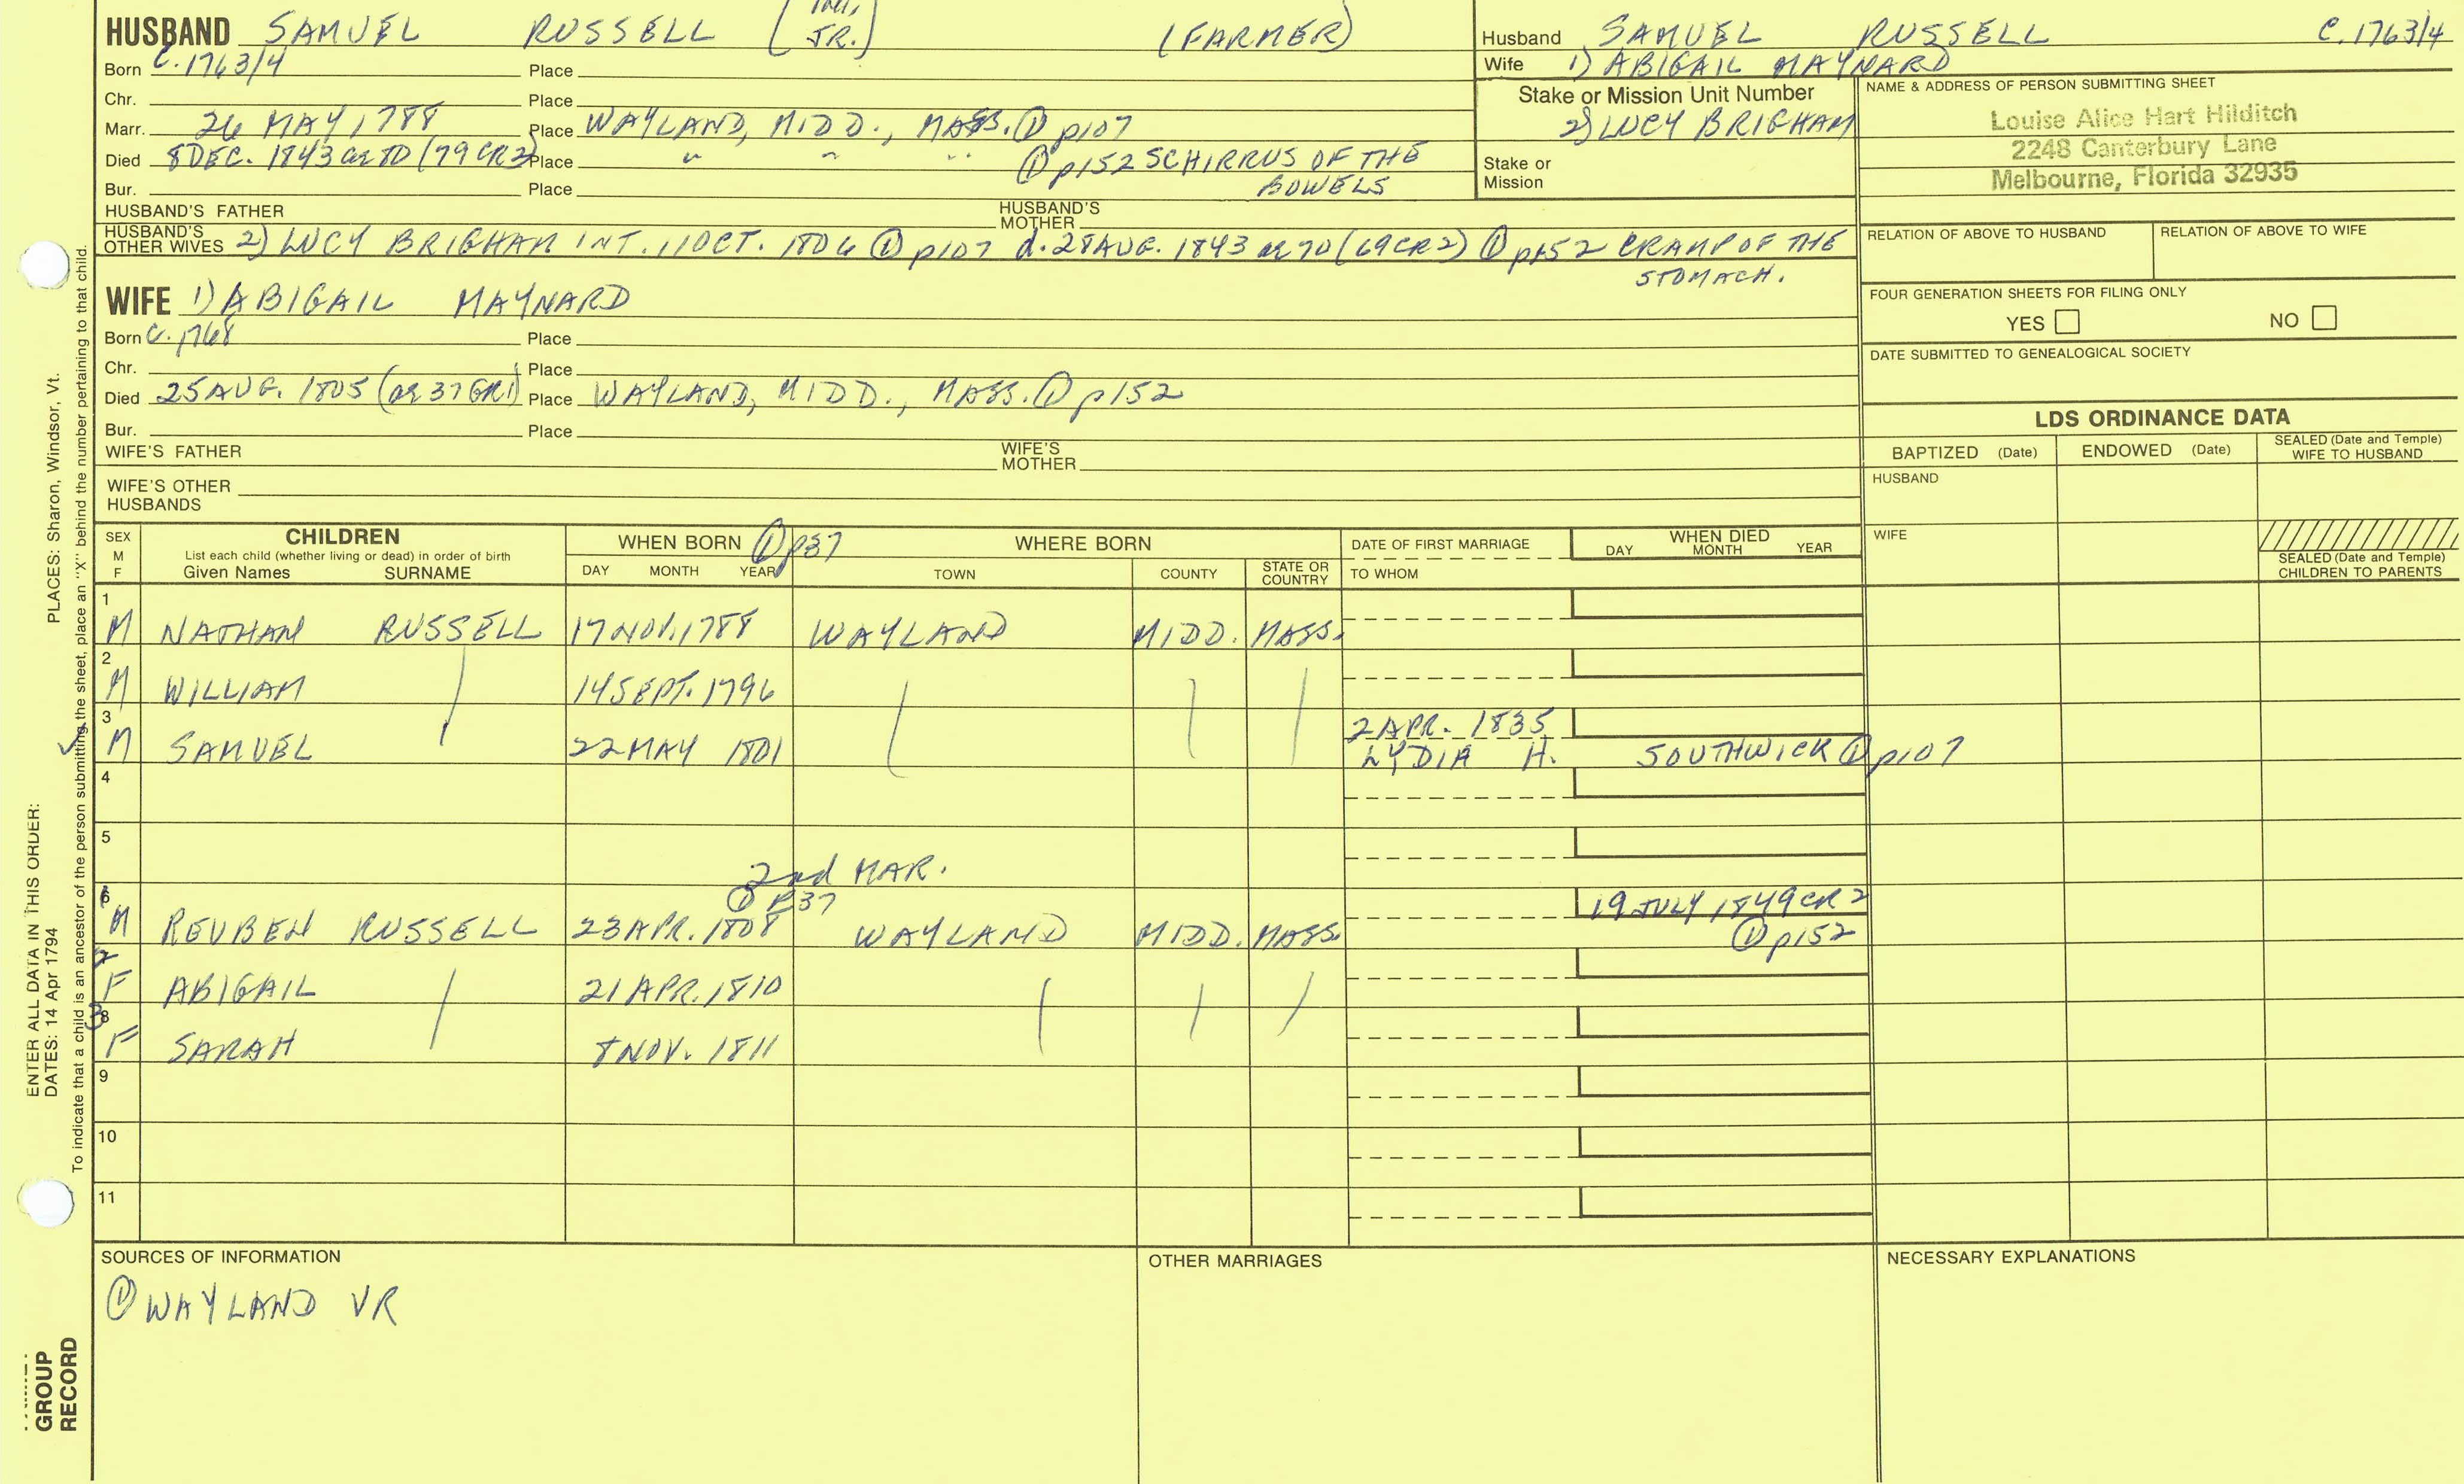 HUSBAND SAMUEL RUSSELL [ JR.] (FARMER)
Born C. 1763/4 Place
Chr. Place
Marr. 26 MAY 1788 Place WAYLAND, MIDD., MASS. ① p107
Died 8 DEC. 1843 ae 80 (79 CR2) Place " " " ① p152 SCHIRRUS OF THE BOWELS
Bur. Place
HUSBAND'S FATHER HUSBAND'S MOTHER
HUSBAND'S OTHER WIVES 2) LUCY BRIGHAM INT. 11 OCT. 1806 ① p107 d. 28 AUG. 1843 ae 70 (69 CR2) ① p152 CRAMP OF THE STOMACH.
WIFE 1) ABIGAIL MAYNARD
Born C. 1768 Place
Chr. Place
Died 25 AUG. 1805 (ae 37 GR1) Place WAYLAND, MIDD., MASS. ① p152
Bur. Place
WIFE'S FATHER WIFE'S MOTHER
WIFE'S OTHER HUSBANDS
Husband SAMUEL RUSSELL C. 1763/4
Wife 1) ABIGAIL MAYNARD
Stake or Mission Unit Number
2) LUCY BRIGHAM
Stake or Mission
NAME & ADDRESS OF PERSON SUBMITTING SHEET
Louise Alice Hart Hilditch
2248 Canterbury Lane
Melbourne, Florida 32935
RELATION OF ABOVE TO HUSBAND RELATION OF ABOVE TO WIFE
FOUR GENERATION SHEETS FOR FILING ONLY
YES NO
DATE SUBMITTED TO GENEALOGICAL SOCIETY
LDS ORDINANCE DATA
BAPTIZED (Date) ENDOWED (Date) SEALED (Date and Temple) WIFE TO HUSBAND
HUSBAND
WIFE
SEALED (Date and Temple) CHILDREN TO PARENTS
SEX M F
CHILDREN
List each child (whether living or dead) in order of birth
Given Names SURNAME
WHEN BORN ① p37
DAY MONTH YEAR
WHERE BORN
TOWN COUNTY STATE OR COUNTRY
DATE OF FIRST MARRIAGE
TO WHOM
WHEN DIED
DAY MONTH YEAR
1 M NATHAN RUSSELL 17 NOV. 1788 WAYLAND MIDD. MASS.
2 M WILLIAM 14 SEPT. 1796
3 M SAMUEL 22 MAY 1801 2 APR. 1835
LYDIA H. SOUTHWICK ① p107
4
5
2nd MAR.
① p37
6 M REUBEN RUSSELL 23 APR. 1808 WAYLAND MIDD. MASS. 19 JULY 1849 CR2
① p152
F ABIGAIL 21 APR. 1810
8 F SARAH 8 NOV. 1811
9
10
11
SOURCES OF INFORMATION
① WAYLAND VR
OTHER MARRIAGES
NECESSARY EXPLANATIONS
ENTER ALL DATA IN THIS ORDER:
DATES: 14 Apr 1794 PLACES: Sharon, Windsor, Vt.
To indicate that a child is an ancestor of the person submitting the sheet, place an "X" behind the number pertaining to that child.
GROUP
RECORD